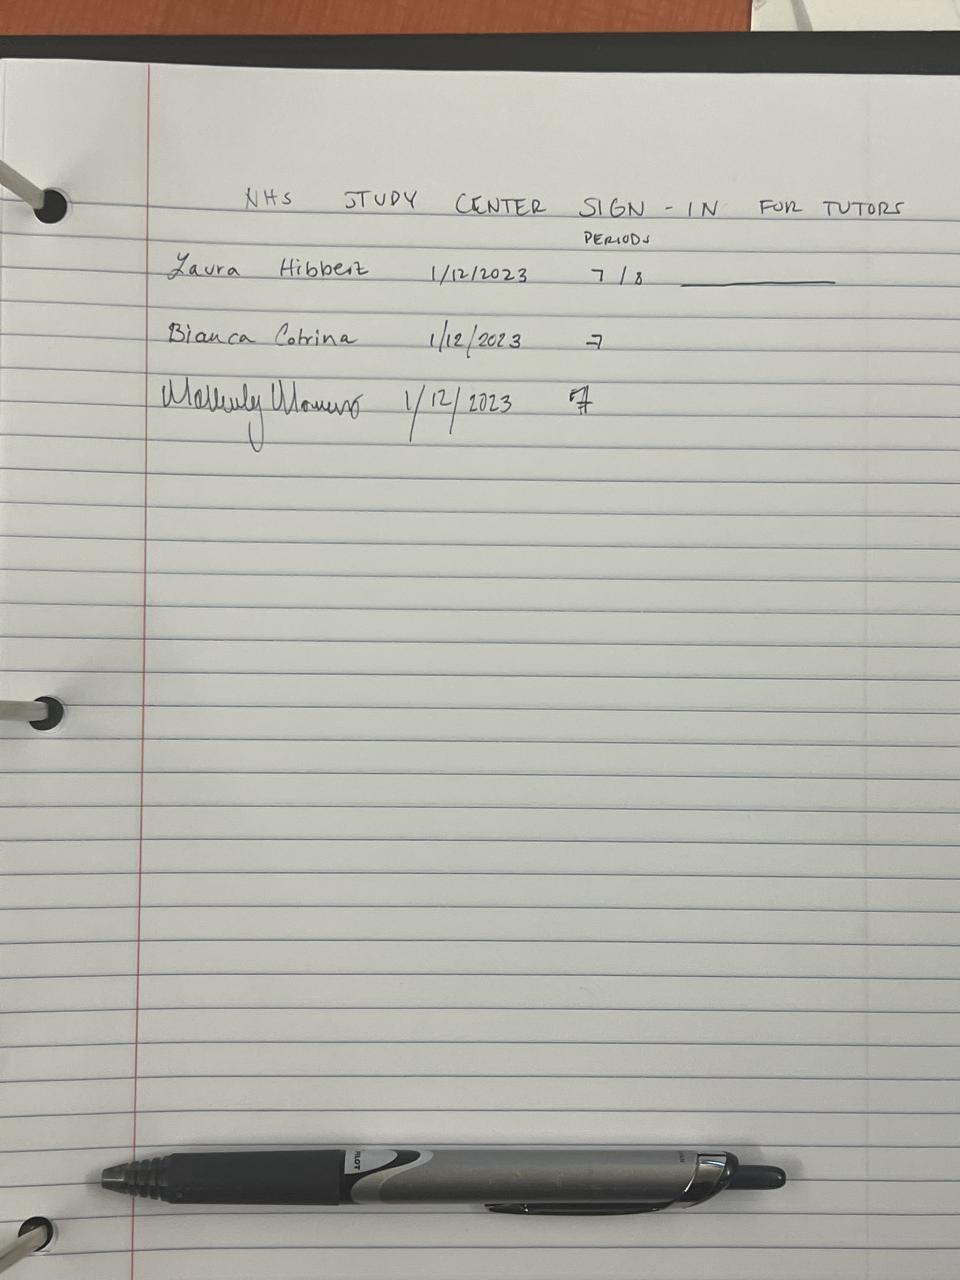 NHS STUDY CENTER SIGN-IN FOR TUTORS
PERIODS
Laura Hibbert 1/12/2023 7/8
Bianca Cobrina 1/12/2023 7
1/12/2023 7
PILOT